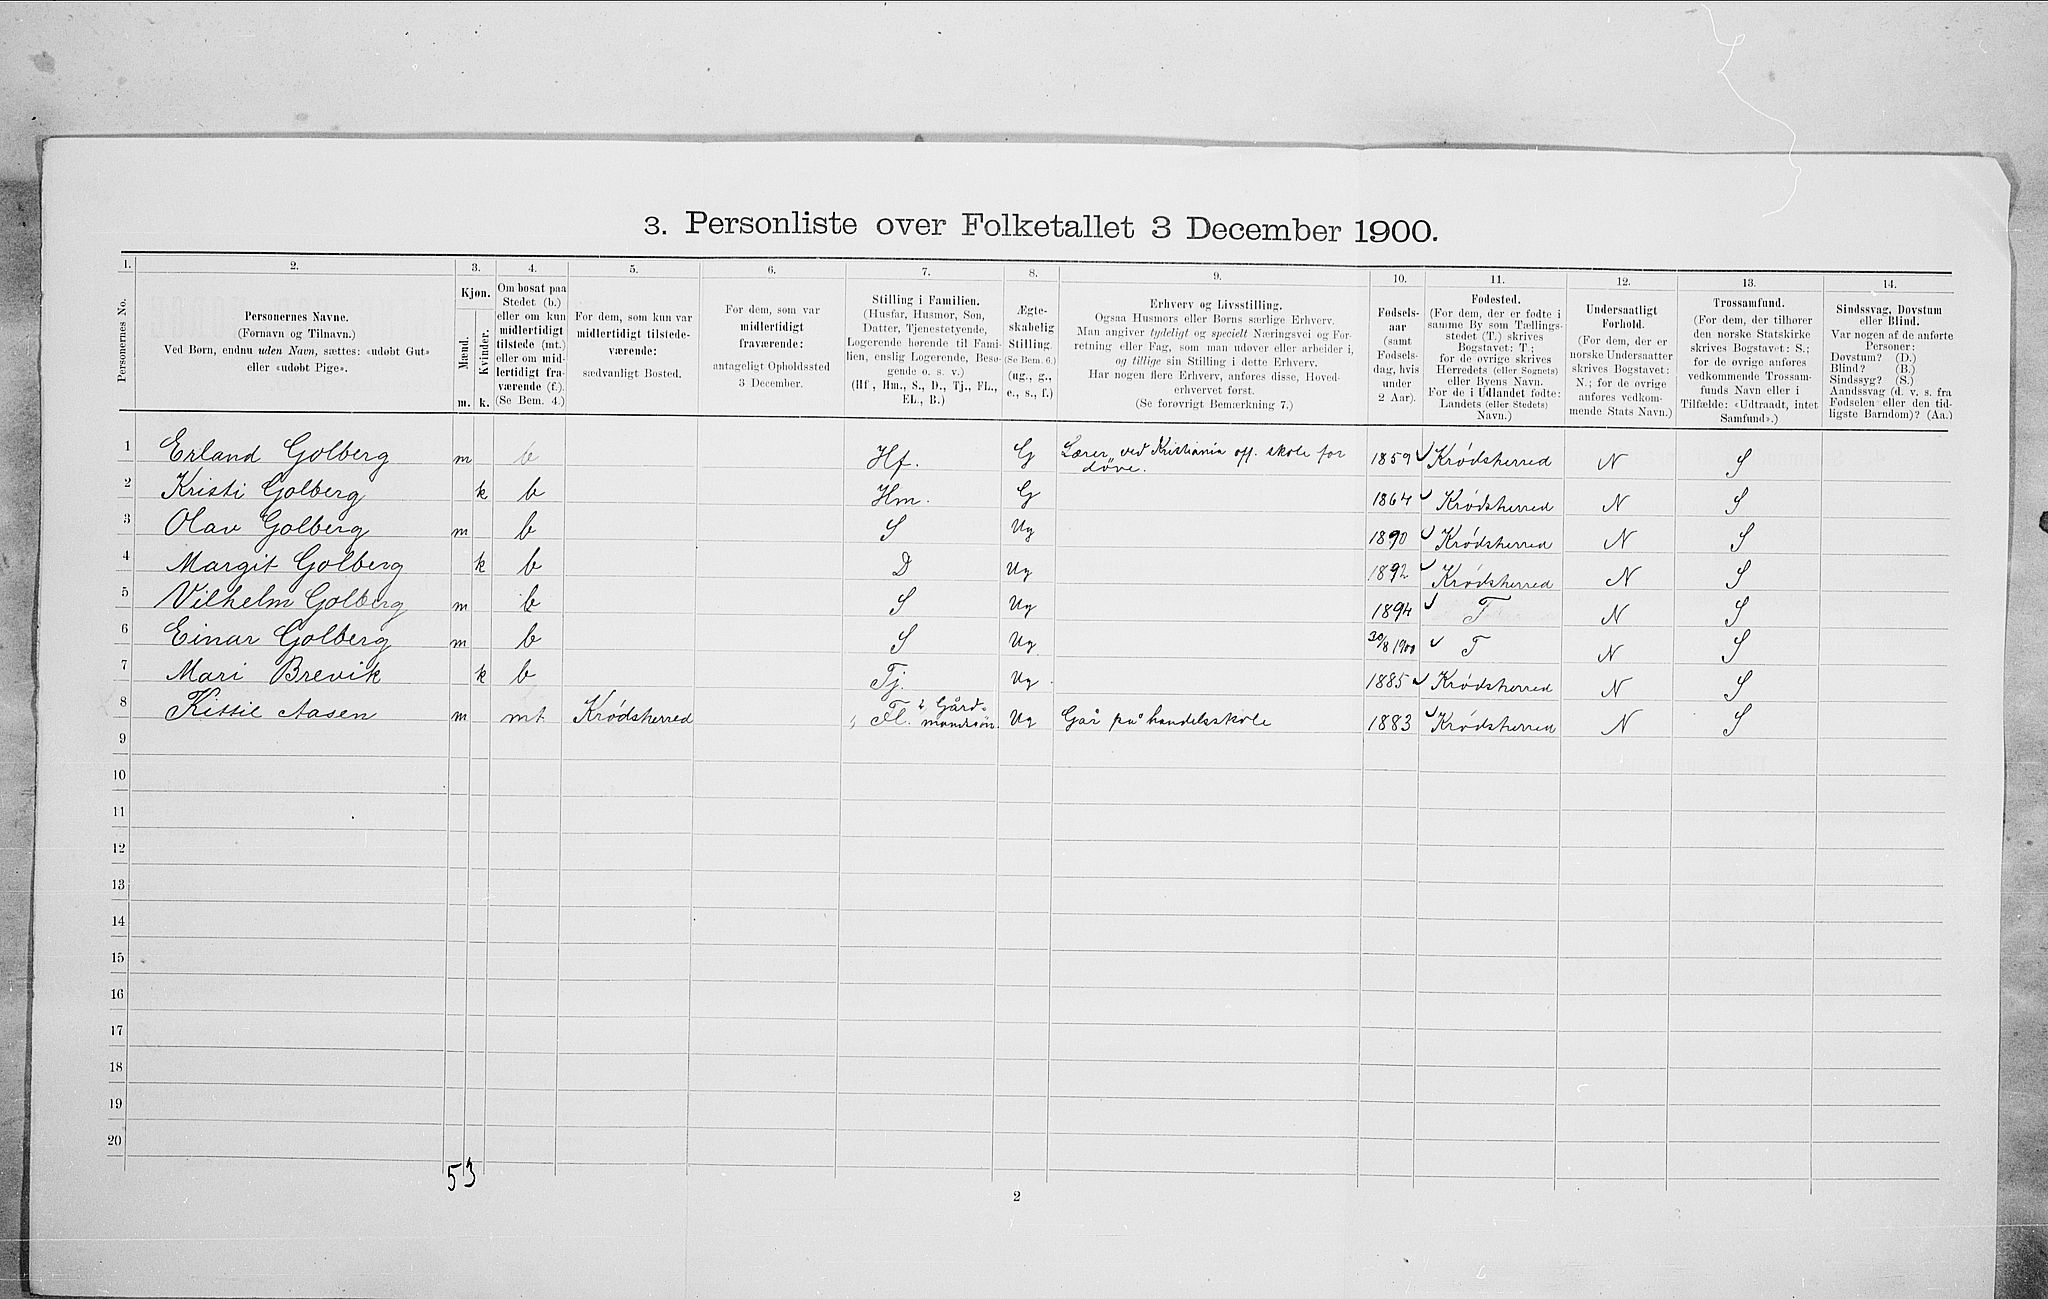 3. Personliste over Folketallet 3 December 1900.
1. 2. 3. 4. 5. 6. 7. 8. 9. 10. 11. 12. 13. 14.
Personernes No.
Personernes Navne.
(Fornavn og Tilnavn.)
Ved Børn, endnu uden Navn, sættes: «udøbt Gut»
eller «udøbt Pige».
Kjøn.
Mænd.
Kvinder.
m. k.
Om bosat paa
Stedet (b.)
eller om kun
midlertidigt
tilstede (mt.)
eller om mid-
lertidigt fra-
værende (f.).
(Se Bem. 4.)
For dem, som kun var
midlertidigt tilstede-
værende:
sædvanligt Bosted.
For dem, som var
midlertidigt
fraværende:
antageligt Opholdssted
3 December.
Stilling i Familien.
(Husfar, Husmor, Søn,
Datter, Tjenestetyende,
Logerende hørende til Fami-
lien, enslig Logerende, Besø-
gende o. s. v.)
(Hf., Hm., S., D., Tj., FL.,
EL., B.)
Ægte-
skabelig
Stilling.
(Se Bem. 6.)
(ug., g.,
e., s., f.)
Erhverv og Livsstilling.
Ogsaa Husmors eller Børns særlige Erhverv.
Man angiver tydeligt og specielt Næringsvei og For-
retning eller Fag, som man udøver eller arbeider i,
og tillige sin Stilling i dette Erhverv.
Har nogen flere Erhverv, anføres disse, Hoved-
erhvervet først.
(Se forøvrigt Bemærkning 7.)
Fødsels-
aar
(samt
Fødsels-
dag, hvis
under
2 Aar).
Fødested.
(For dem, der er fødte i
samme By som Tællings-
stedet (T.) skrives
Bogstavet: T;
for de øvrige skrives
Herredets (eller Sognets)
eller Byens Navn.
For de i Udlandet fødte:
Landets (eller Stedets)
Navn.)
Undersaatligt
Forhold.
(For dem, der er
norske Undersaatter
skrives Bogstavet:
N.; for de øvrige
anføres vedkom-
mende Stats Navn.)
Trossamfund.
(For dem, der tilhører
den norske Statskirke
skrives Bogstavet: S.;
for de øvrige anføres
vedkommende Trossam-
funds Navn eller i
Tilfælde: «Udtraadt, intet
Samfund».)
Sindssvag, Døvstum
eller Blind.
Var nogen af de anførte
Personer:
Døvstum? (D.)
Blind? (B.)
Sindssyg? (S.)
Aandssvag (d. v. s. fra
Fødselen eller den tid-
ligste Barndom)? (Aa.)
1 Erland Golberg m b Hf. G Lærer ved Kristiania off. skole for døve. 1859 Krødsherred N S
2 Kristi Golberg k b Hm. G 1864 Krødsherred N S
3 Olav Golberg m b S Ug 1890 Krødsherred N S
4 Margit Golberg k b D Ug 1892 Krødsherred N S
5 Vilhelm Golberg m b S Ug 1894 T N S
6 Einar Golberg m b S Ug 30/8 1900 T N S
7 Mari Brevik k b Tj. Ug 1885 Krødsherred N S
8 Kittil Aasen m mt. Krødsherred Fl. Gård-mandssøn. Ug Går på handelsskole 1883 Krødsherred N S
9
10
11
12
13
14
15
16
17
18
19
20
5 3
2